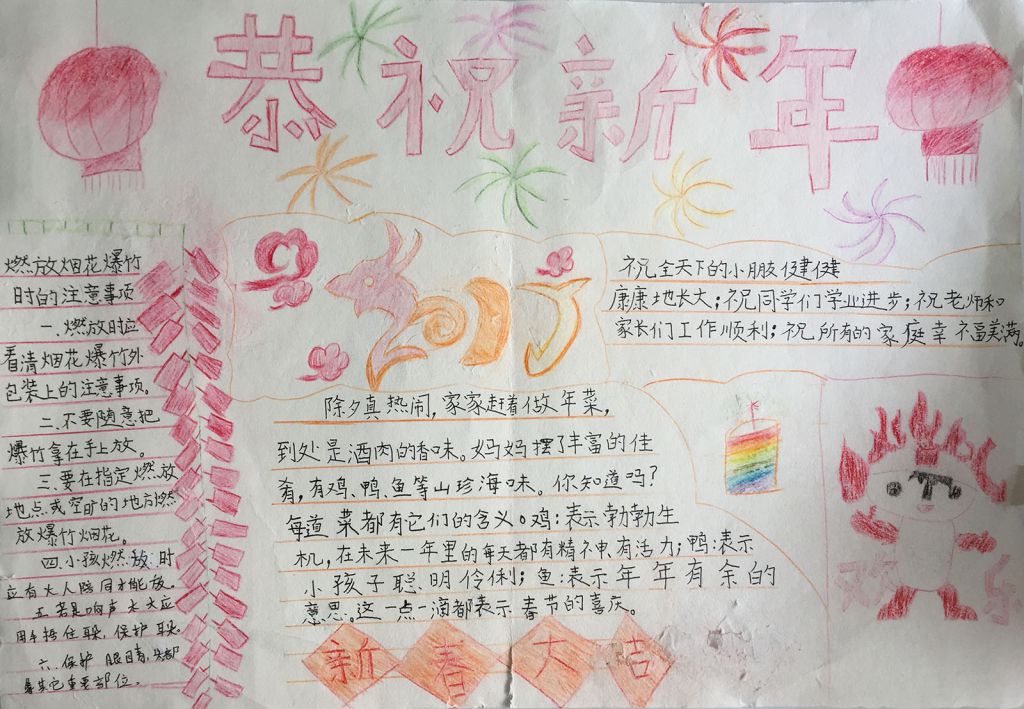 恭祝新年
燃放烟花爆竹
时的注意事项
一.燃放时应
看清烟花爆竹外
包装上的注意事项。
二.不要随意把
爆竹拿在手上放。
三.要在指定燃放
地点或空旷的地方燃
放爆竹烟花。
四.小孩燃放时
应有大人陪同才能放。
五.若是响声太大应
用手捂住耳朵,保护耳朵.
六.保护眼睛,头部
等其它重要部位。
2017
祝全天下的小朋友健健
康康地长大;祝同学们学业进步;祝老师和
家长们工作顺利;祝所有的家庭幸福美满。
除夕真热闹,家家赶着做年菜,
到处是酒肉的香味。妈妈摆了丰富的佳
肴,有鸡、鸭、鱼等山珍海味。你知道吗?
每道菜都有它们的含义。鸡:表示勃勃生
机,在未来一年里的每天都有精神、有活力;鸭:表示
小孩子聪明伶俐;鱼:表示年年有余的
意思.这一点一滴都表示春节的喜庆。
新春大吉
欢乐